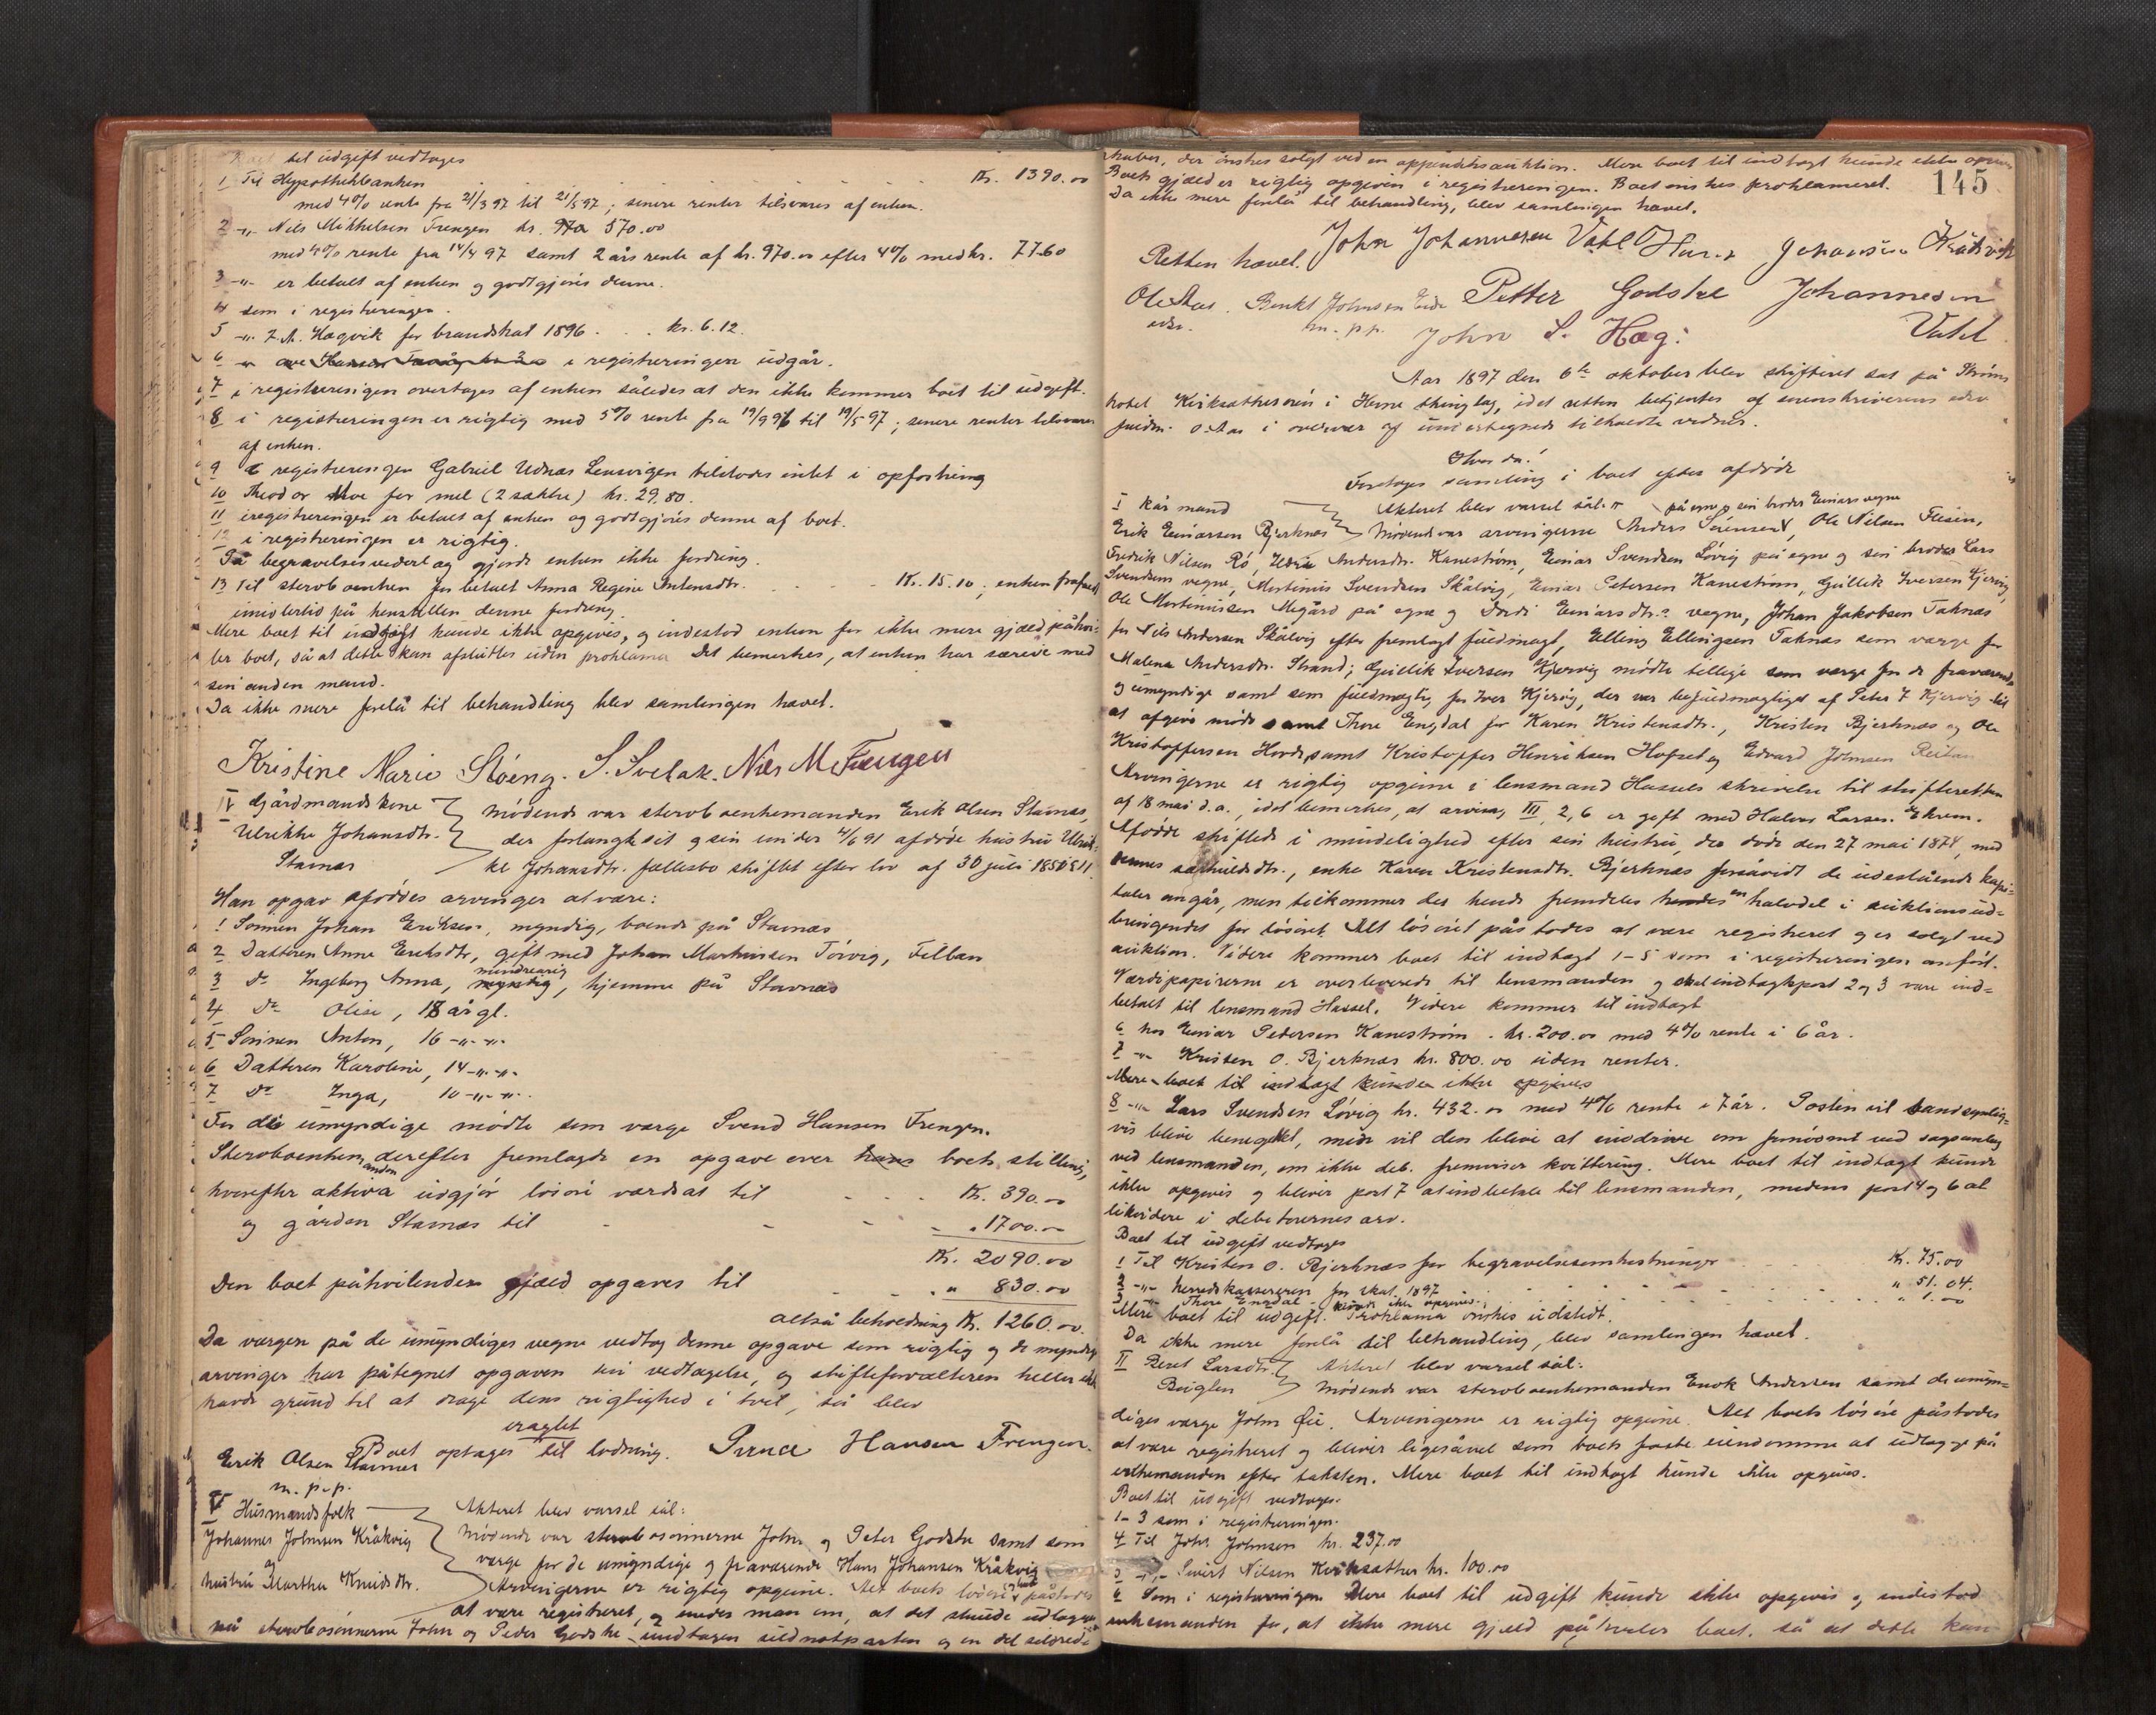 til udgift vedtages
1 Til Hypothekbanken Kr. 1390.00
med 4% rente fra 21/3 97 til 21/5 97; senere renter tilsvares af enken.
2 -"- Nils Mikkelsen Frengen kr. 570.00
med 4% rente fra 14/4 97 samt 2 års rente af kr. 970.00 efter 4% med kr. 77.60
3 -"- er betalt af enken og godtgjøres denne.
4 som i registreringen.
5 -"- Hagvik for brandskat 1896 . . kr. 6.12.
6 i registreringen udgår.
7 i registreringen overtages af enken således at den ikke kommer boet til udgift.
8 i registreringen er rigtig med 5% rente fra 19/9 96 til 19/5 97; senere renter tilsvares
af enken.
9 i registreringen Gabriel Udnæs Lensvigen tilstodes intet i opfostring
10 Theodor for mel (2 sække) kr. 29.80.
11 i registreringen er betalt af enken og godtgjøres denne af boet.
12 i registreringen er rigtig.
På begravelsesvederlag gjorde enken ikke fordring.
13 Til sterboenken for betalt Anna Regine Kr. 15.10; enken frafaldt
imidlertid på henstillen denne fordring.
Mere boet til indtægt kunde ikke opgives, og indestod enken for ikke mere gjæld påhvi-
ler boet, så at dette kan afsluttes uden proklama. Det bemerkes, at enken har særeie med
sin anden mand.
Da ikke mere forelå til behandling blev samlingen hævet.
Kristine Marie Slóeng. S. Svelak. Nils M. Frengen
IV Gårdmandskone
Ulrikke Johansdtr.
Stavnæs
Mødende var sterboenkemanden Erik Olsen Stavnæs,
der forlangte sit og sin under 4/6 91 afdøde hustru Ulrik-
ke Johansdtr. fællesbo skiftet efter lov af 30 juli 1851 § 11.
Han opgav afdødes arvinger at være:
1 Sønnen Johan Eriksen, myndig, boende på Stavnæs
2 Datteren Anne Eriksdtr, gift med Johan Martinisen Tövig, Fillan
3 Do Ingeborg Anna, mindreårig, hjemme på Stavnæs
4 Do Olise, 18 år gl.
5 Sönnen Anton, 16 -"- -"-
6 Datteren Karoline, 14 -"- -"-
7 Do Inga, 10 -"- -"-
For de umyndige mødte som værge Svend Hansen Frengen.
Sterboenkemanden derefter fremlagde en opgave over boets stilling,
hvorefter aktiva udgjør løsøre værdsat til Kr. 390.00
og gården Stavnæs til " 1700.00
Kr. 2090.00
Den boet påhvilende gjæld opgaves til " 830.00
altså beholdning Kr. 1260.00.
Da værgen på de umyndiges vegne vedtog denne opgave som rigtig og de myndige
arvinger har påtegnet opgaven sin vedtagelse, og skifteforvalteren heller ikke
havde grund til at drage dens rigtighed i tvil, så blev
eragtet
Boet optages til lodning.
Erik Olsen Stavnæs Svend Hansen Frengen
m. p. p.
V Husmandsfolk
Johannes Johnsen Kråkvig
og
hustru Martha Knudsdtr.
Akteret blev varsel sål:
Mødende var sterbosönnerne John og Peter Godske samt som
værge for de umyndige og fraværende Hans Johansen Kråkvig
Arvingerne er rigtig opgivne. Alt boets løsøre påstodes
at være registreret, og enedes man om, at det skulde udlægges
på sterbosönnerne John og Peder Godske undtagen sildnotparten og en del silderéd-
145
skaber, der ønskes solgt ved en appendiksauktion. Mere boet til indtægt kunde ikke opgives
Boets gjæld er rigtig opgiven i registreringen. Boet ønskes proklameret.
Da ikke mere forelå til behandling, blev samlingen hævet.
Retten hævet. John Johannesen Vahl Hans Johansen Kråkvik
Ole Aas. Benkt Johnsen Eide Petter Godske Johannesen
edsv. m. p. p. John S. Hæg: Vahl
Aar 1897 den 6te oktober blev skifteret sat på Ströms
hotel Kirksæterören i Hevne thinglag, idet retten betjentes af sorenskriverens edsv
fuldm. O. Aas i overvær af undertegnede tilkaldte vidner.
Hvor da!
Foretoges samling i boet efter afdöde
I Kårmand
Erik Einarsen Bjerknæs
Akteret blev varsel sål: på egne og sin broder Einars vegne
Mødende var arvingerne Anders Sörensen, Ole Nilsen Flesen,
Fredrik Nilsen Rö, Andersdtr. Kaneström, Einar Svendsen Lövig på egne og sin broder Lars
Svendsens vegne, Mortinus Svendsen Skålvig, Einar Petersen Kaneström, Gullik Iversen Kjervig
Ole Mortinussen Megård på egne og Dordi Einarsdtr.s vegne, Johan Jakobsen Taknæs
for Nils Andersen Skålvig efter fremlagt fuldmagt, Elling Ellingsen Taknæs som værge for
Malena Andersdtr. Strand; Gullik Iversen Kjervig mødte tillige som værge for de fraværende
og umyndige samt som fuldmægtig for Iver Kjervig, der var befuldmægtiget af Peter I. Kjervig til
at afgive møde samt Thore Engdal for Karen Kristensdtr., Kristen Bjerknæs og Ole
Kristoffersen Hovde, samt Kristoffer Henriksen Hofset og Edvard Johnsen
Arvingerne er rigtig opgivne i lensmand Hassels skrivelse til skifteretten
af 18 mai d.a., idet bemerkes, at arving III, 2, 6 er gift med Halvor Larsen Ekrem.
Afdöde skiftede i mindelighed efter sin hustru, der döde den 27 mai 1874, med
dennes datter, enke Karen Kristensdtr. Bjerknæs forsåvidt de udestående kapi-
taler angår, men tilkommer der hende fremdeles en halvdel i auktionsud-
bringendet for løsöret. Alt løsöret påstodes at være registreret og er solgt ved
auktion. Videre kommer boet til indtægt 1-5 som i registreringen anført.
Værdipapirerne er overleverede til lensmanden og skal indtægtspost 2 og 3 være ind-
betalt til lensmand Hassel. Videre kommer til indtægt
6 hos Einar Pedersen Kaneström . kr. 200.00 med 4% rente i 6 år.
7 -"- Kristen O. Bjerknæs kr. 800.00 uden renter.
Mere boet til indtægt kunde ikke opgives
8 -"- Lars Svendsen Lövig kr. 432.00 med 4% rente i 7 år. Posten vil sandsynlig-
vis blive benegtet, men vil den blive at inddrive om fornödent ved sagsanlæg
ved lensmanden, om ikke deb. fremviser kvittering. Mere boet til indtægt kunde
ikke opgives og bliver post 7 at indbetale til lensmanden, medens post 4 og 6 at
likvidere i debitorernes arv.
Boet til udgift vedtages
1 Til Kristen O. Bjerknæs for begravelsesomkostninger Kr. 75.00
2 -"- herredskassereren for skat 1897 " 51.04.
3 -"- Thore Engdal " 1.00
Mere boet til udgift kunde ikke opgives. Proklama ønskes udstedt.
Da ikke mere forelå til behandling, blev samlingen hævet.
II Beret Larsdtr.
Buglen
Akteret blev varsel sål:
Mødende var sterboenkemanden Enok Andersen samt de umyn-
diges værge John Öie. Arvingerne er rigtig opgivne. Alt boets løsöre påstodes
at være registreret og bliver ligesåvel som boets faste eiendomme at udlægge på
enkemanden efter taksten. Mere boet til indtægt kunde ikke opgives.
Boet til udgift vedtages:
1-3 som i registreringen.
4 Til John Johnsen kr. 237.00
5 -"- Sivert Nilsen Kirksæther kr. 100.00
6 Som i registreringen Mere boet til udgift kunde ikke opgives og indestod
enkemanden for, at ikke mere gjæld påhviler boet, så at dette kan